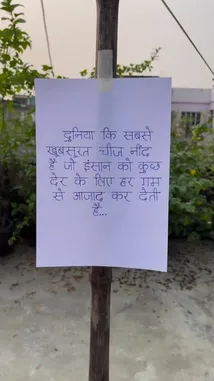 दुनिया कि सबसे
खुबसूरत चीज नींद
है जो इंसान को कुछ
देर के लिए हर गम
से आजाद कर देती
है...